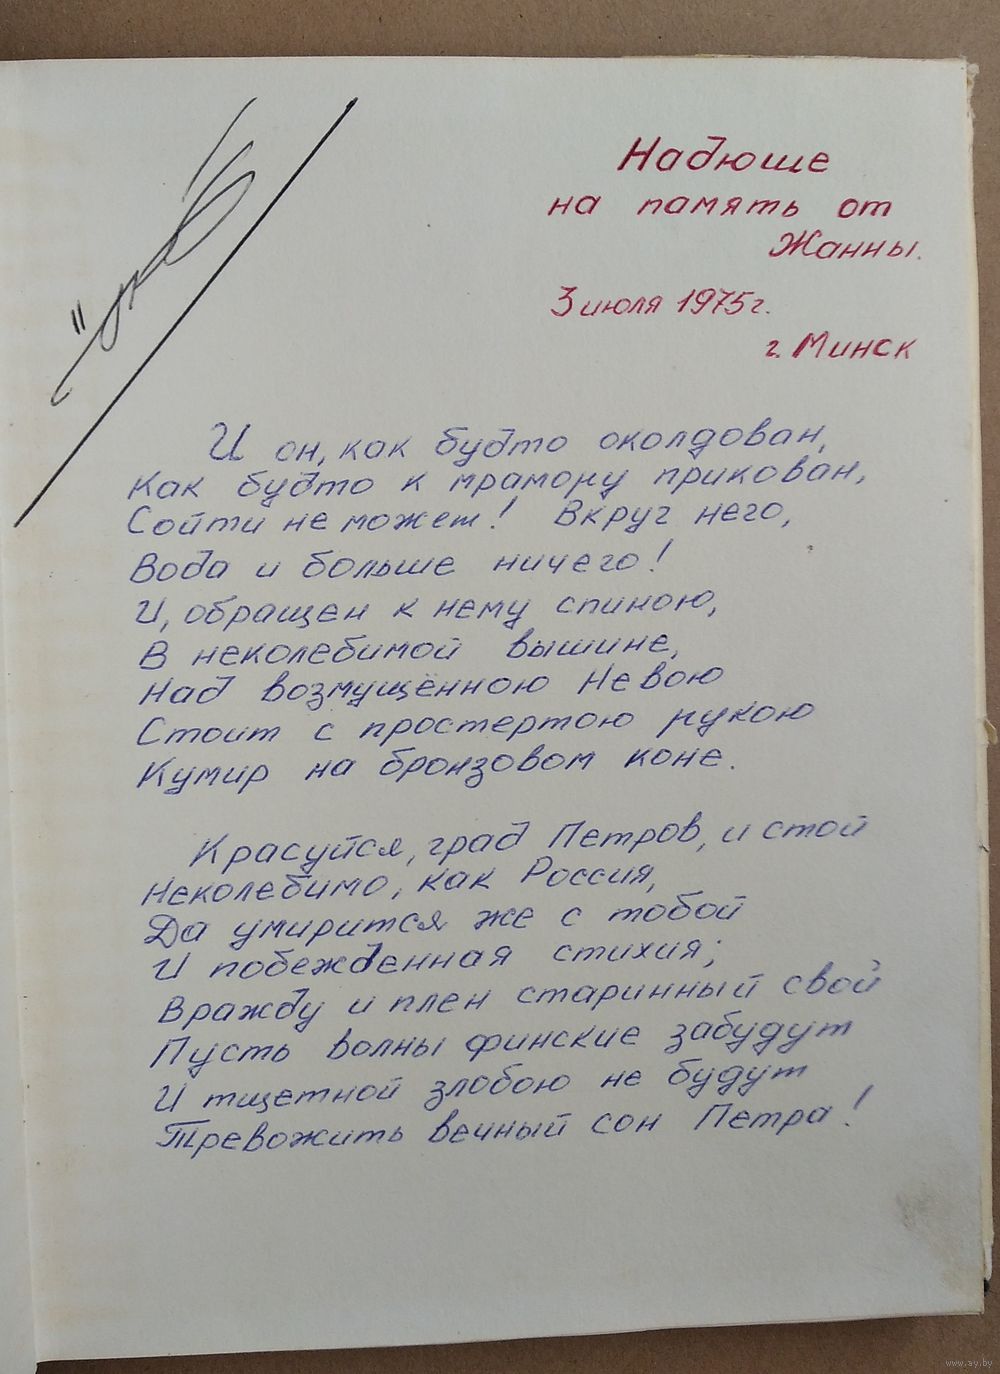 Надюше
на память от
Жанны.
3 июля 1975г.
г. Минск
И он, как будто околдован,
Как будто к мрамору прикован,
Сойти не может! Вкруг него,
Вода и больше ничего!
И, обращен к нему спиною,
В неколебимой вышине,
Над возмущённою Невою
Стоит с простертою рукою
Кумир на бронзовом коне.
Красуйся, град Петров, и стой
Неколебимо, как Россия,
Да умирится же с тобой
И побежденная стихия;
Вражду и плен старинный свой
Пусть волны финские забудут
И тщетной злобою не будут
Тревожить вечный сон Петра!
www.ay.by